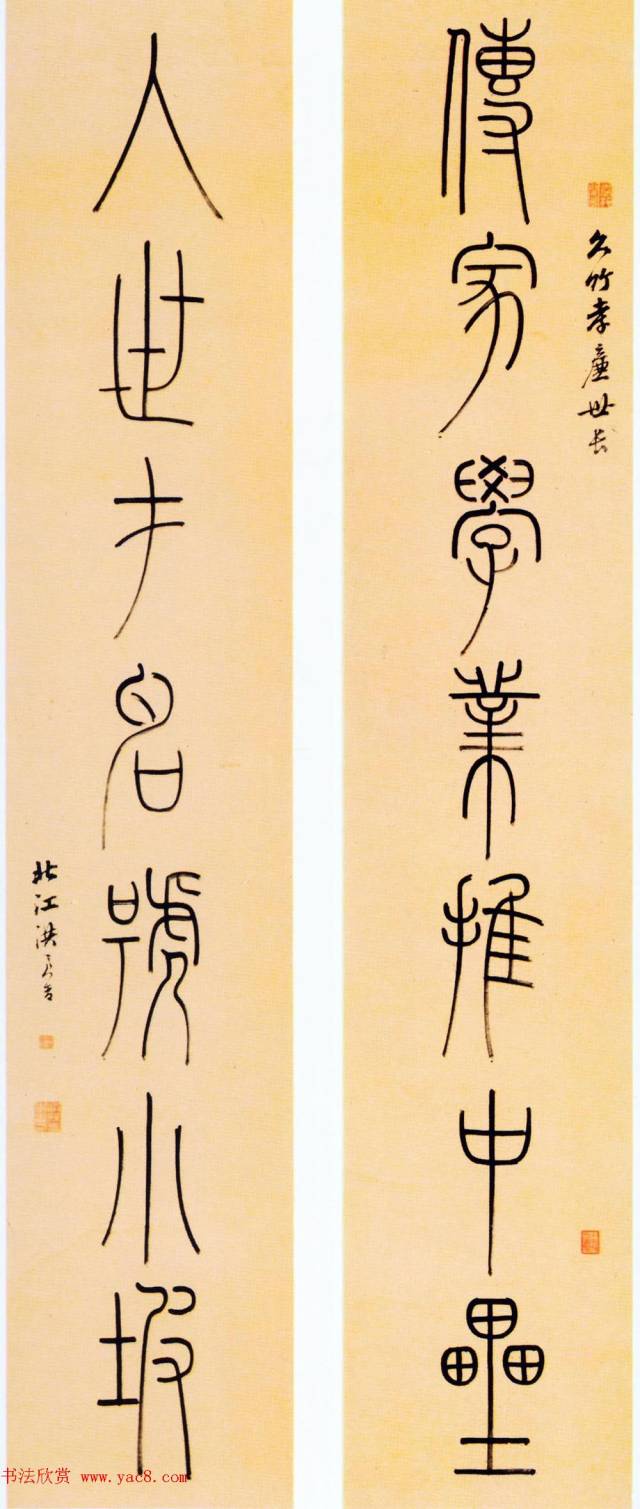 傳家學業推中壘
竹孝廉世長
入世才名號小坡
北江洪亮吉
书法欣赏 www.yac8.com